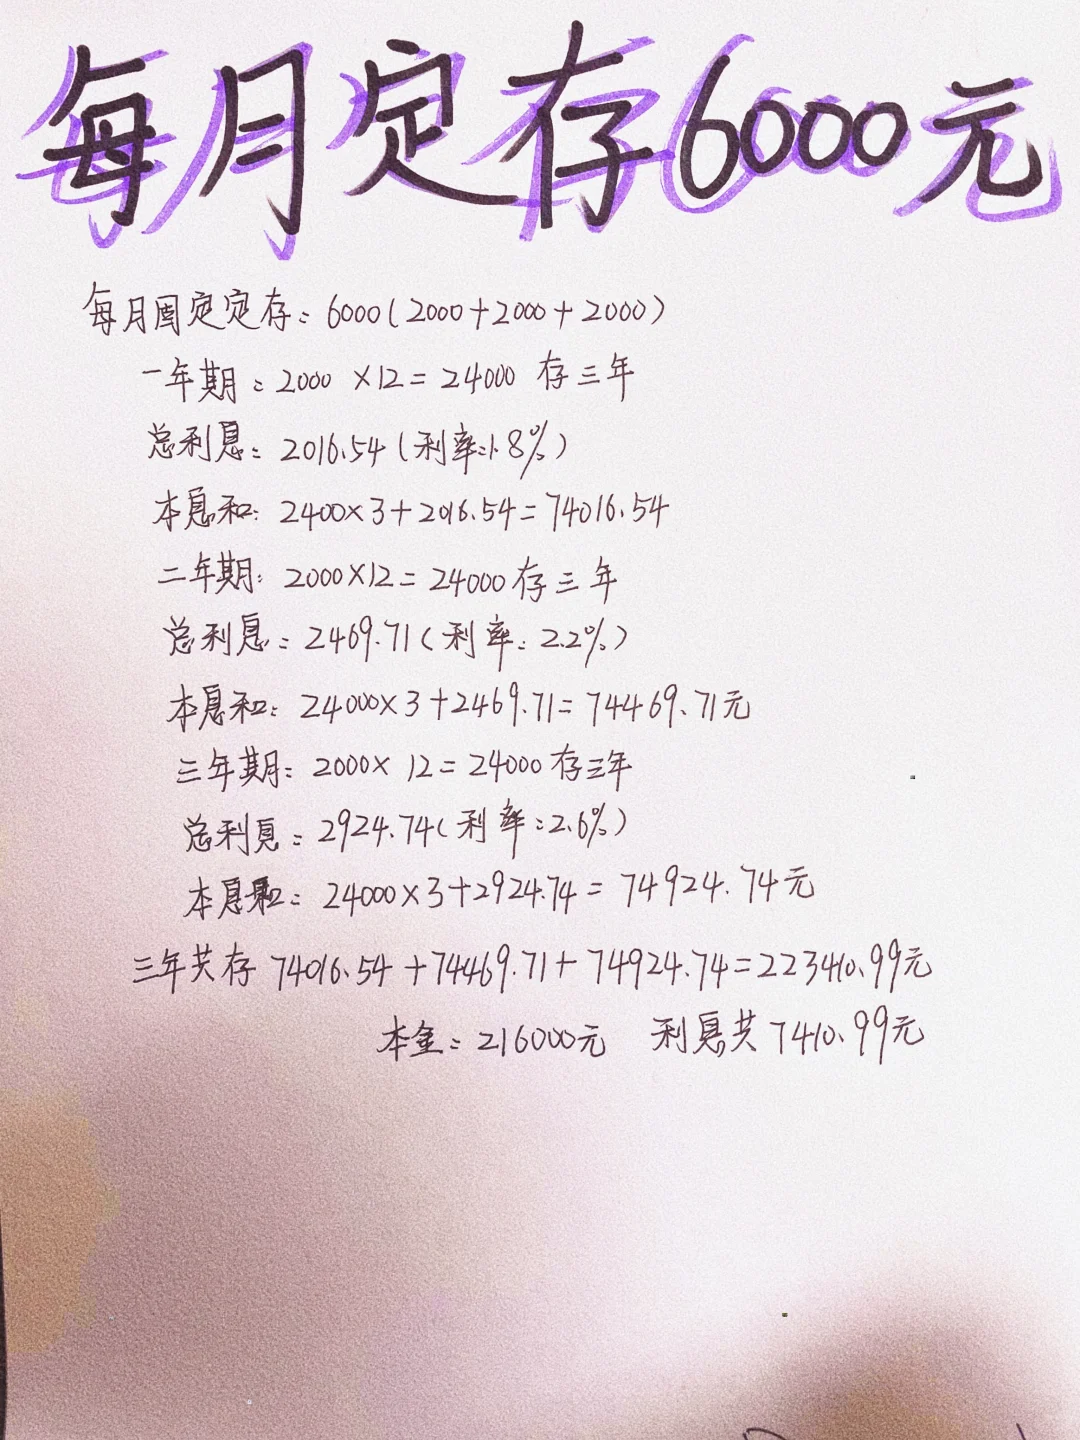 每月定存6000元
每月固定定存：6000(2000+2000+2000)
一年期：2000×12=24000 存三年
总利息：2016.54(利率:1.8%)
本息和：2400×3+2016.54=74016.54
二年期：2000×12=24000存三年
总利息：2469.71(利率：2.2%)
本息和：24000×3+2469.71=74469.71元
三年期：2000×12=24000存三年
总利息：2924.74(利率：2.6%)
本息和：24000×3+2924.74=74924.74元
三年共存 74016.54+74469.71+74924.74=223410.99元
本金：216000元 利息共7410.99元